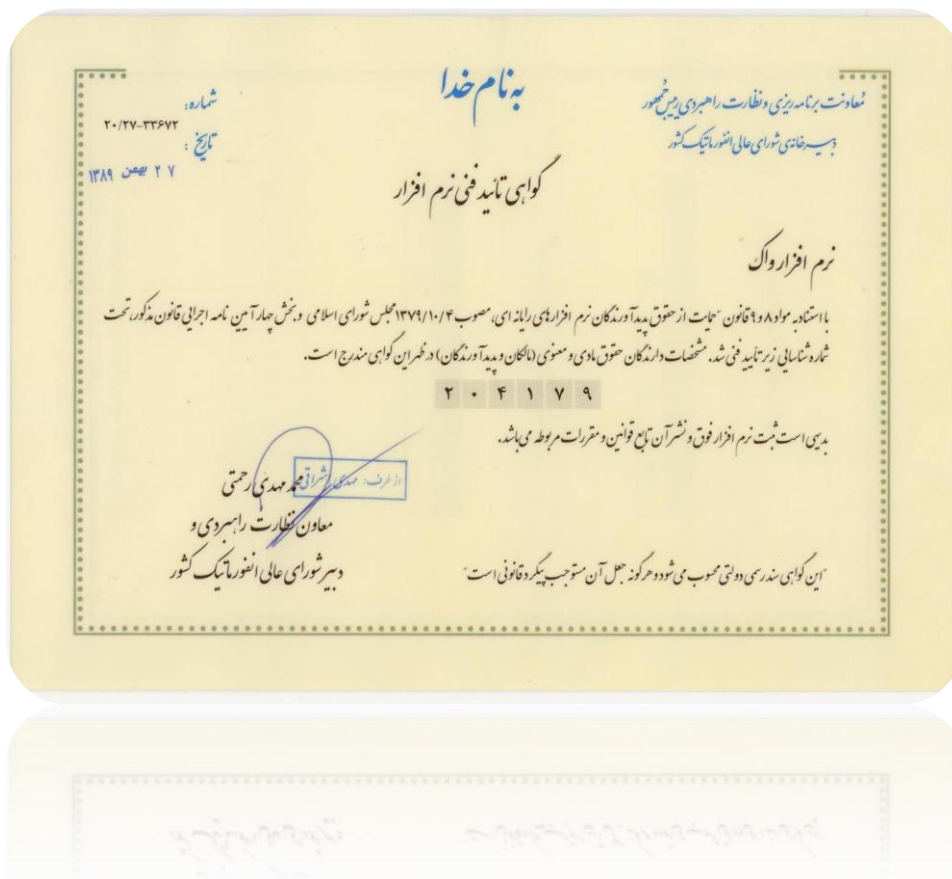 به نام خدا
معاونت برنامه ریزی و نظارت راهبردی رییس جمهور
دبیرخانه‌ی شورای عالی انفورماتیک کشور
شماره:
۲۰/۲۷-۳۳۶۷۲
تاریخ :
۲۷ بهمن ۱۳۸۹
گواهی تائید فنی نرم افزار
نرم افزار واک
با استناد به مواد ۸ و ۹ قانون "حمایت از حقوق پدیدآورندگان نرم افزارهای رایانه ای، مصوب ۱۳۷۹/۱۰/۴ مجلس شورای اسلامی و بخش چهار آیین نامه اجرایی قانون مذکور، تحت
شماره شناسایی زیر تایید فنی شد. مشخصات دارندگان حقوق مادی و معنوی (مالکان و پدیدآورندگان) در ظهر این گواهی مندرج است.
۲۰۴۱۷۹
بدیهی است ثبت نرم افزار فوق و نشر آن تابع قوانین و مقررات مربوطه می باشد.
از طرف: مهدی
محمد مهدی رحمتی
معاون نظارت راهبردی و
دبیر شورای عالی انفورماتیک کشور
"این گواهی سند رسمی دولتی محسوب می شود و هرگونه جعل آن مستوجب پیگرد قانونی است"